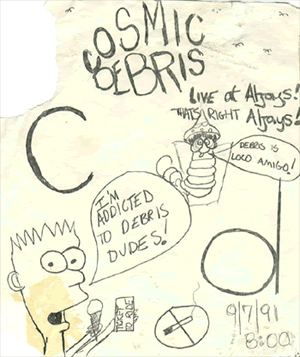 COSMIC
DEBRIS
LIVE at Aljays!
THATS RIGHT Aljays!
C
DEBRIS IS
LOCO AMIGO!
I'M
ADDICTED
TO DEBRIS
DUDES!
d
TICKET
TO RIDE
9/7/91
8:00